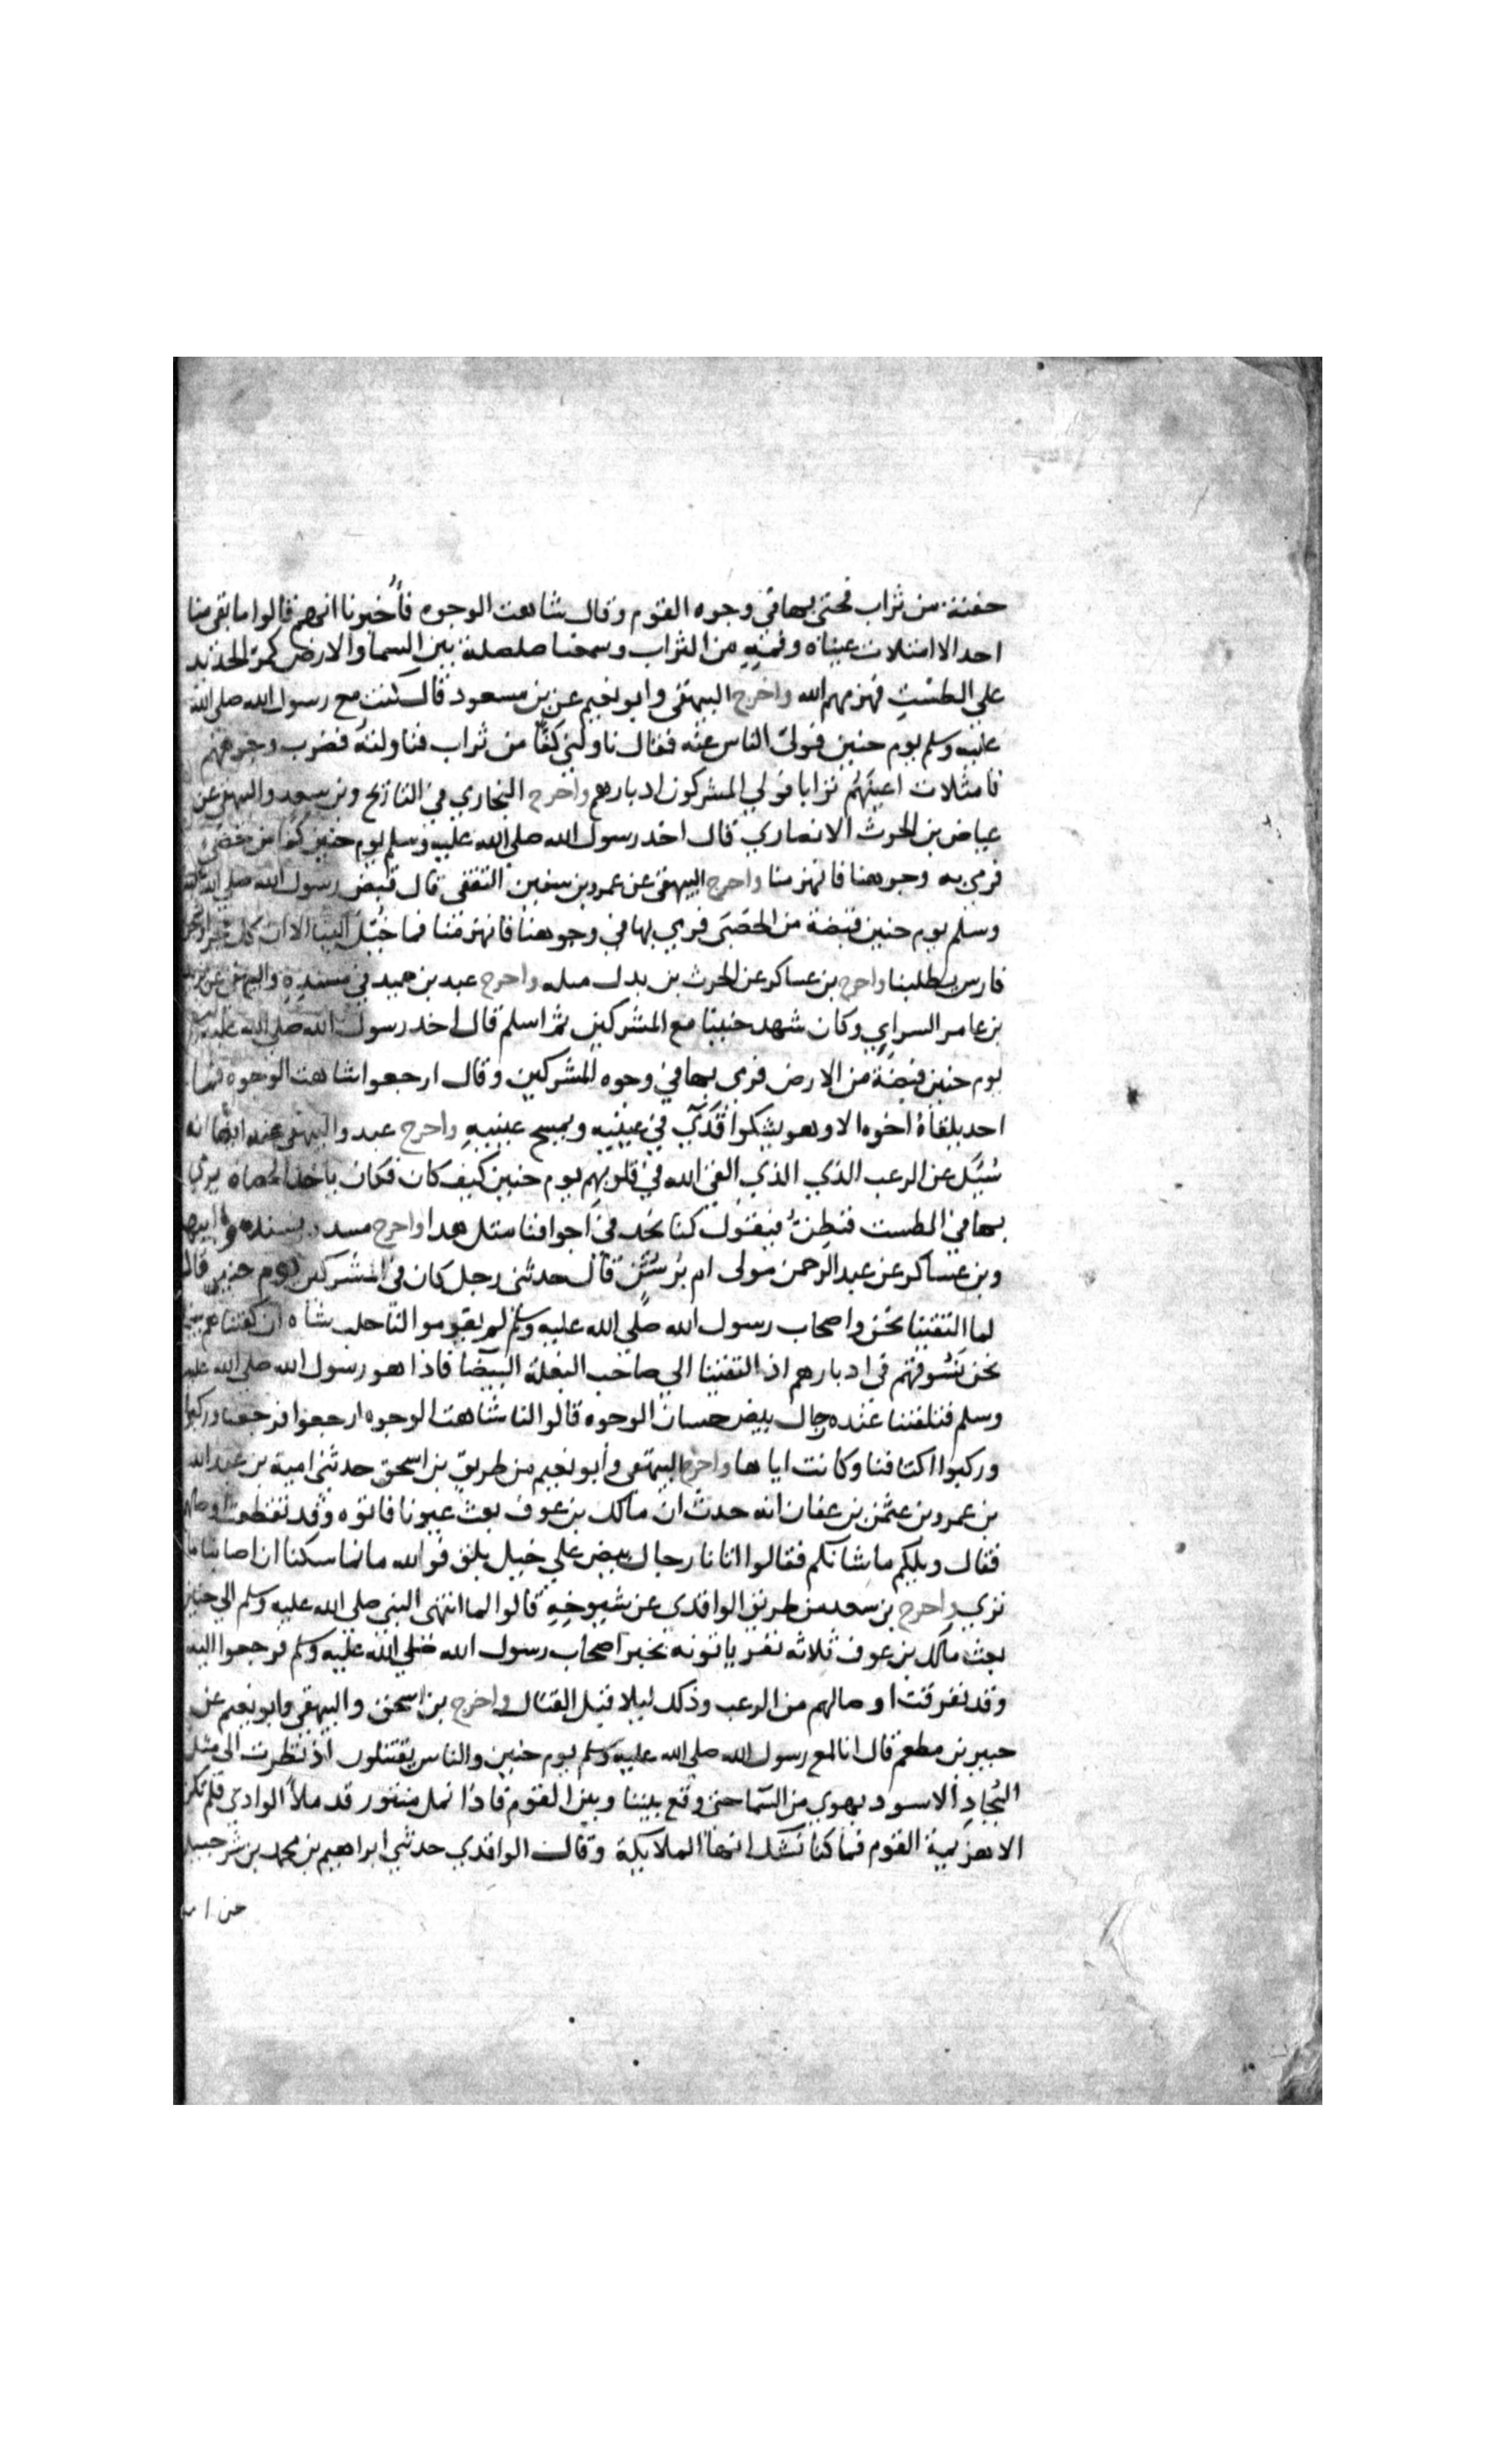 حفنة من تراب فحثى بها في وجوه القوم وقال شاهت الوجوه فأخبرونا انهم قالوا ما بقى منا
احد الا امتلات عيناه وفمه من التراب وسمعنا صلصلة بين السما والارض كمر الحديد
على الطست فهزمهم الله واخرج البيهقى وابو نعيم عن بن مسعود قال كنت مع رسول الله صلى الله
عليه وسلم يوم حنين فولى الناس عنه فقال ناولني كفًا من تراب فناولته فضرب وجوههم
فامتلات اعينهم ترابا فولي المشركون ادبارهم واخرج البخاري في التاريخ وبن سعد والبيهقى عن
عياض بن الحرث الانصاري قال اخد رسول الله صلى الله عليه وسلم يوم حنين كفا من حصى
فرمى به وجوهنا فانهزمنا واخرج البيهقى عن عمرو بن سفين الثقفى قال قبض رسول الله صلى الله
وسلم يوم حنين قبضة من الحصبى فرمي بها في وجوهنا فانهزمنا فما خيل الينا الا ان كل حجر
فارس يطلبنا واخرج بن عساكر عن الحرث بن بدل مثله واخرج عبد بن حميد في مسنده والبيهقى عن
بن عامر السراي وكان شهد حنينا مع المشركين ثم اسلم قال اخد رسول الله صلى الله عليه
يوم حنين قبضة من الارض فرمى بها في وجوه المشركين وقال ارجعوا شاهت الوجوه فما
احد يلقاه اخوه الا وهو يشكوا قذى في عينيه ويمسح عينيه واخرج عبد والبيهقى عنه ايضا انه
سُئل عن الرعب الذي الذي القى الله في قلوبهم يوم حنين كيف كان فكان ياخد الحصاه يرمي
بها في الطست فتطن فيقول كنا نجد في اجوافنا مثل هدا واخرج مسدد بسنده
وبن عساكر عن عبد الرحمن مولى ام برثن قال حدثنى رجل كان في المشركين يوم حنين قال
لما التقينا نحن واصحاب رسول الله صلى الله عليه وسلم لم يقوموا لنا حلب شاه ان كفيناهم
نحن نسوقهم فى ادبارهم اذ التقينا الي صاحب البغلة البيضا فاذا هو رسول الله صلى الله عليه
وسلم فتلقتنا عنده رجال بيض حسان الوجوه قالوا لنا شاهت الوجوه ارجعوا فرجعنا وركبوا
وركبوا اكتافنا وكانت اياها واخرج البيهقى وأبو نعيم من طريق بن اسحق حدثنى امية بن عبد الله
بن عمرو بن عثمن بن عفان انه حدث ان مالك بن عوف بعث عيونا فاتوه وقد تقطعت اوصالهم
فقال ويلكم ما شانكم فقالوا اتانا رجال بيض علي خيل بلق فوالله ما تماسكنا ان اصابنا ما
نري واخرج بن سعد من طريق الواقدي عن شيوخه قالوا لما انتهى النبى صلى الله عليه وسلم الي حنين
بعث مالك بن عوف ثلاثه نفر ياتونه بخبر اصحاب رسول الله صلي الله عليه وسلم فرجعوا اليه
وقد تفرقت اوصالهم من الرعب وذلك ليلا قبل القتال واخرج بن اسحق والبيهقي وابو نعيم عن
جبير بن مطعم قال انا لمع رسول الله صلى الله عليه وسلم يوم حنين والناس يقتتلون اذ نظرت الى مثل
البجاد الاسود يهوي من السما حتى وقع بيننا وبين القوم فاذا نمل منثور قد ملأ الوادي فلم تكن
الا هزيمة القوم فما كنا نشك انها الملايكة وقال الواقدي حدثني ابراهيم بن محمد بن شرحبيل